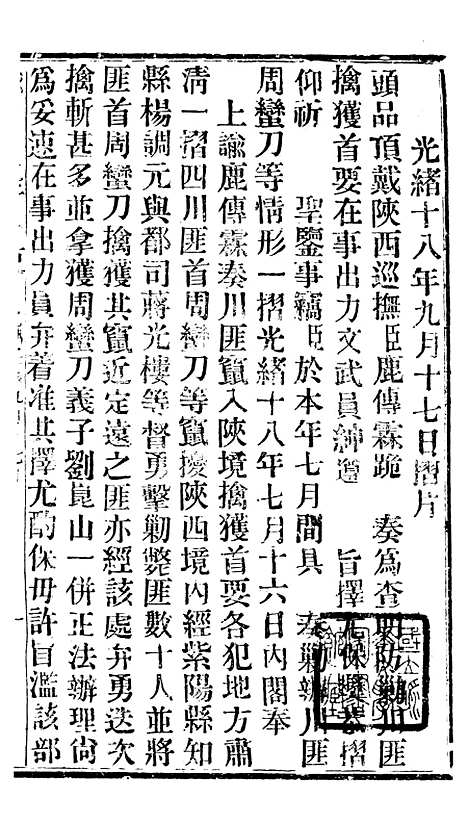 光緒十八年九月十七日摺片
頭品頂戴陝西巡撫臣鹿傳霖跪 奏爲查明防勦川匪
擒獲首要在事出力文武員紳遵 旨擇尤保奬恭摺
仰祈 聖鑒事竊臣於本年七月間具 奏勦辦川匪
周蠻刀等情形一摺光緒十八年七月十六日內閣奉
上諭鹿傳霖奏川匪竄入陝境擒獲首要各犯地方肅
淸一摺四川匪首周蠻刀等竄擾陝西境內經紫陽縣知
縣楊調元與都司蔣光樓等督勇擊勦斃匪數十人並將
匪首周蠻刀擒獲其竄近定遠之匪亦經該處弁勇迭次
擒斬甚多並拿獲周蠻刀義子劉崑山一併正法辦理尙
爲妥速在事出力員弁着准其擇尤酌保毋許冒濫該部